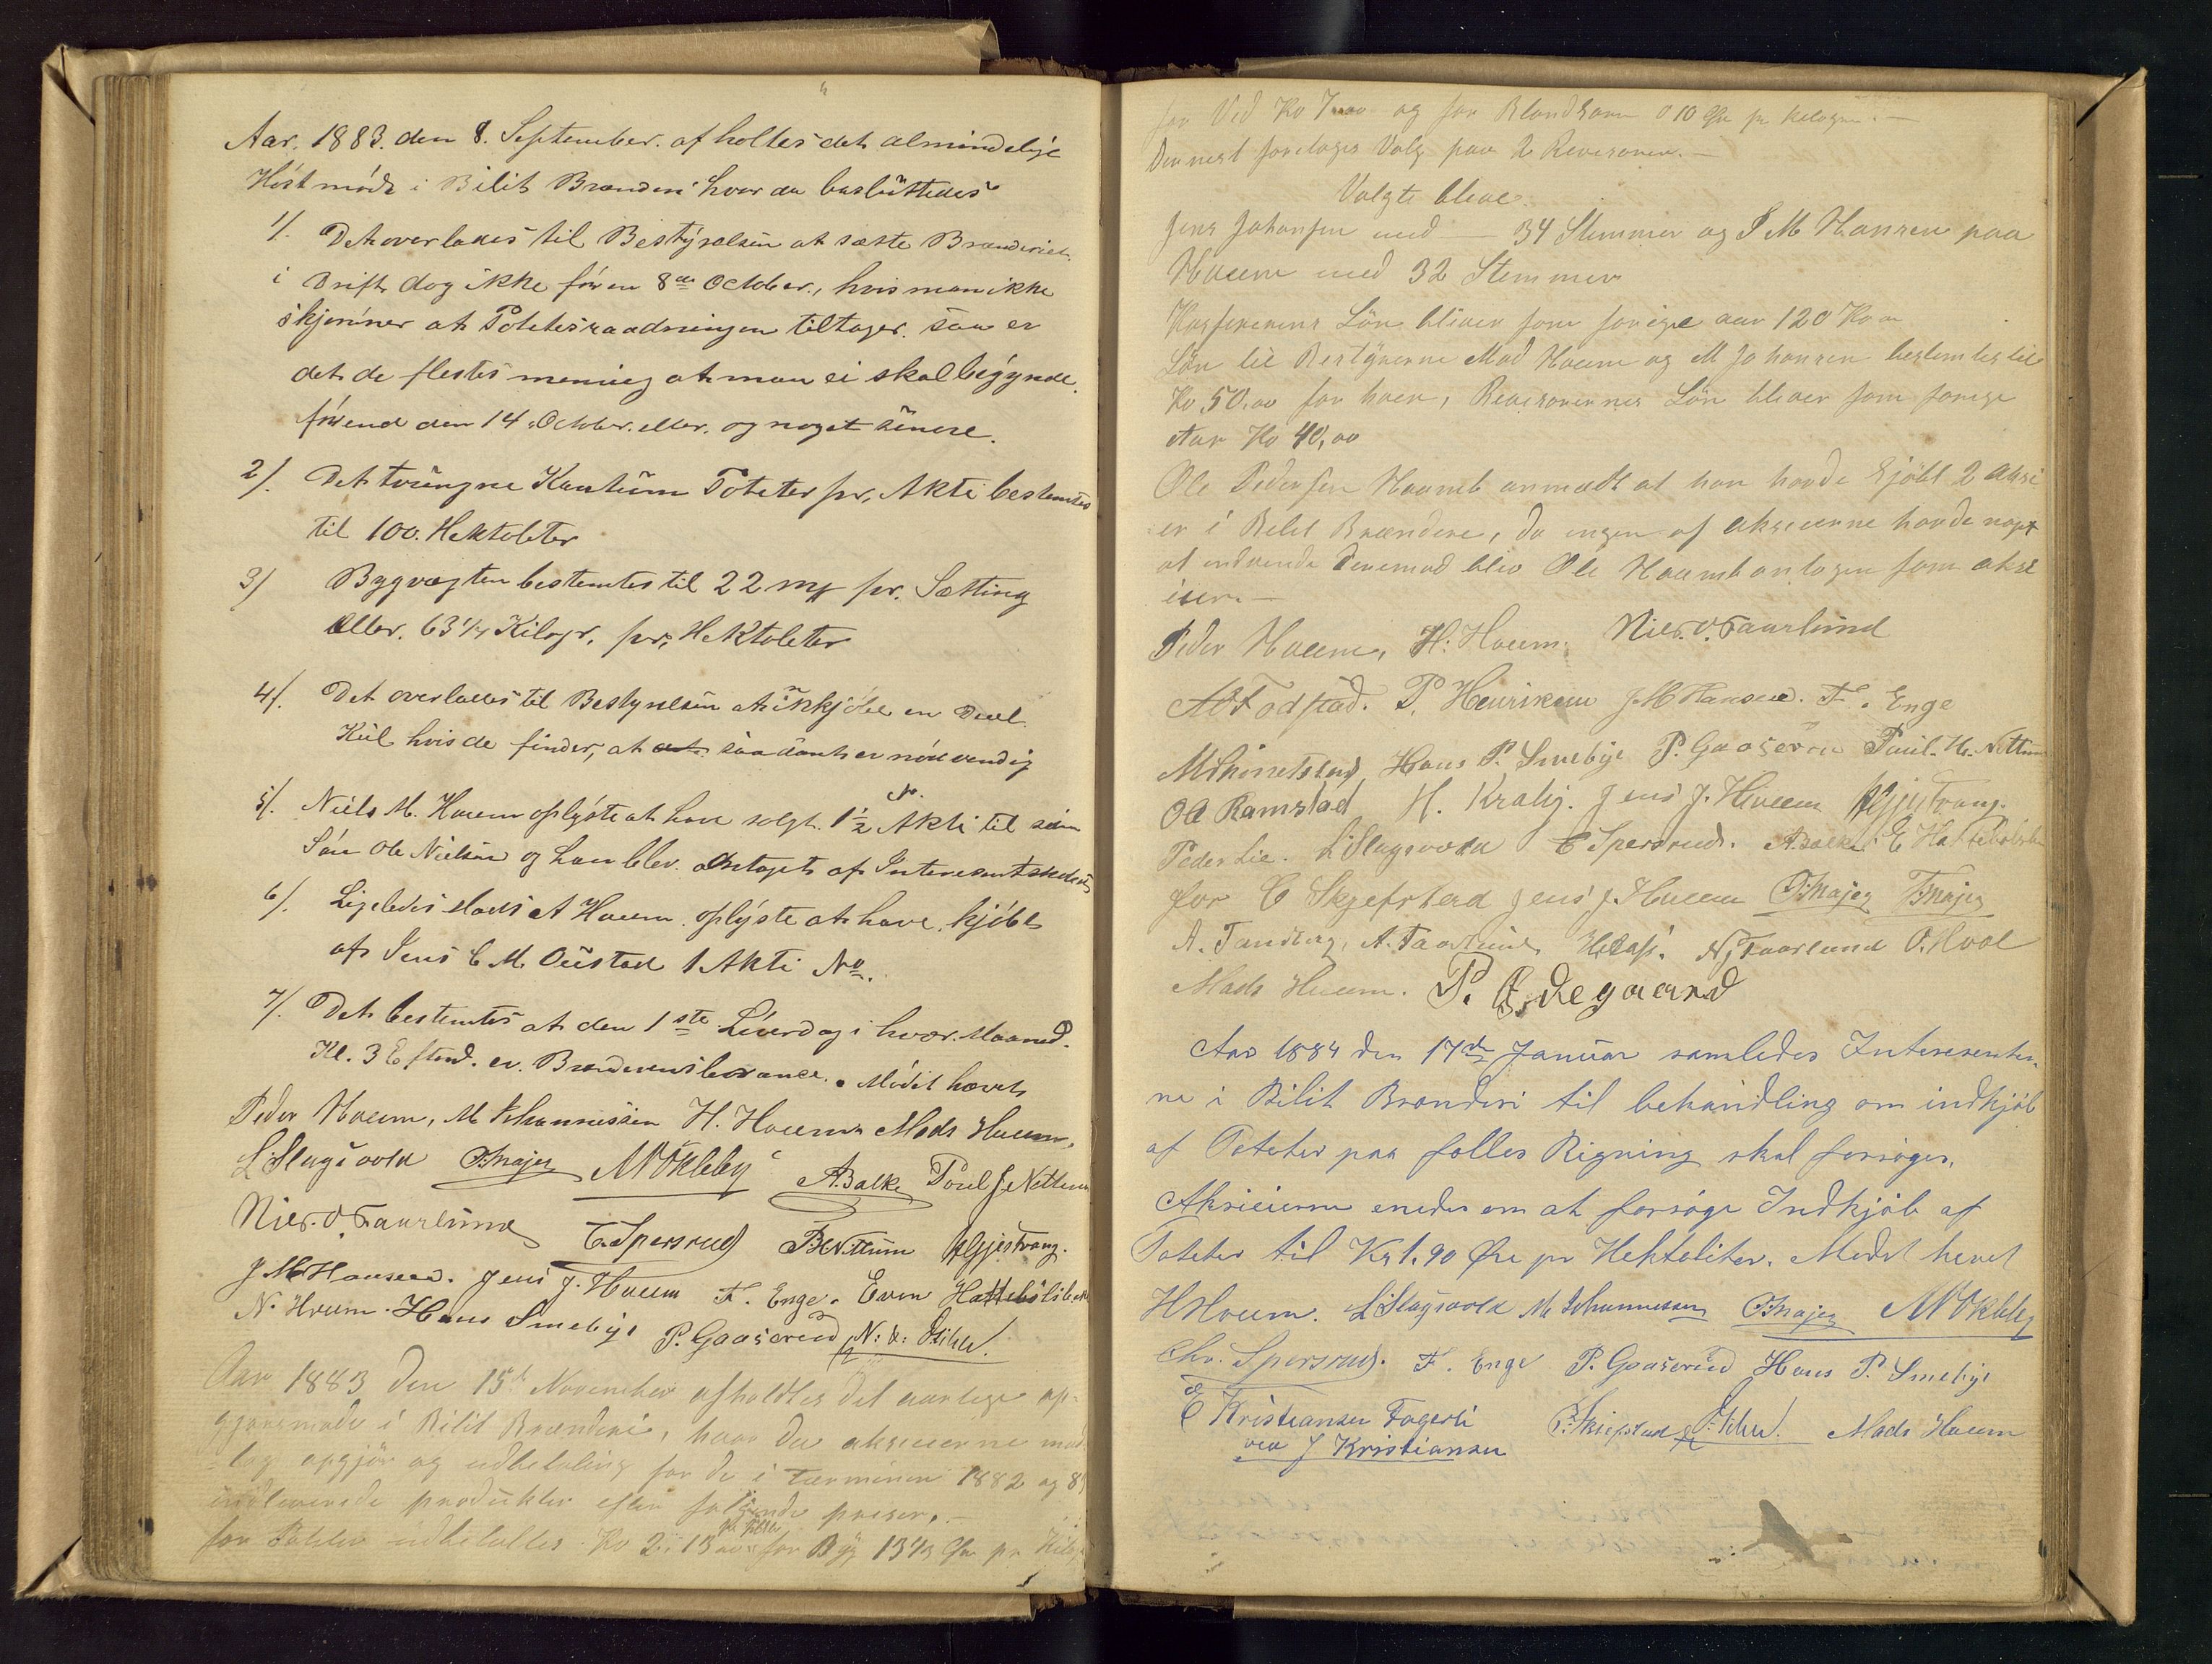 Aar. 1883. den 8. September. afholtes det almindelige
Høstmøde i Bilit Brænderi hvor da besluttedes
1/. Det overlades til Bestyrelsen at sætte Brænderiet
i Drift dog ikke før en 8de October, hvis man ikke
skjønner at Potetesraadningen tiltager. saa er
det de flestes mening at man ei skal begynde
førend den 14 October. eller. og noget senere.
2/. Det tvungne Kvantum Poteter pr, Akti bestemtes
til 100. Hektoleter
3/ Bygvægten bestemtes til 22 mk pr. Sætting
eller. 63 1/4 Kilogr, pr, Hektoleter
4/. Det overlades til Bestyrelsen at inkjøbe en Deel
Kul hvis de finder, at saadant er nødvendig
5/. Niels M. Hoeum oplyste at have solgt. 1 1/2 Akti til sin
Søn Ole Nielsen og han blev. antaget af Interesentskabet
6/. Ligeledes Mads A Hoeum. oplyste at have. kjøbt
af Jens C M Oustad 1 Akti No.
7/. Det bestemtes at den 1ste Løverdag i hver. Maaned.
Kl. 3 Efterd. er. Brænderiets leverance. Mødet hævet
Peder Hoeum, M Johannessen H. Hoeum Mads Hoeum,
L. Slagsvold O. Majer M Økleby A. Balke Poul J. Nettum
Niels. O. Faurlund C. Spersrud B Nettum Gjestvang.
J M Hansen. Jens J. Hoeum F. Enge. Even Hattebolsbak
N. Hveem. Hans Smebye P. Gaaserud N: &: Stiku.
Aar 1883 den 15de November afholdtes det aarlige op=
gjørsmøde i Bilit Brænderi, hvor da aksieierne mod
tog opgjør og udbetaling for de i tærminen 1882 og 83
indleverede produkter efter følgende priser,. —
for Poteter udbetaltes Kr 2: 13 pr Hekto for Byg 13 2/3 Øre pr Kilogr
for Ved Kr 7,00 og for Blandkorn 0 10 Øre pr kelogr. —
Dernest foretages Valg paa 2 Revisorer. —
Valgte bleve.
Jens Johansen med — 34 Stemmer og J M Hansen paa
Hoeum med 32 Stemmer
Kasserernes Løn bliver som forige aar 120 Kr
Løn til Bestyrerne Mad Hoeum og M Johansen bestemtes til
Kr 50.00 for hver, Revisorernes Løn bliver som forege
Aar Kr 40,00
Ole Pedersen Haamb anmedt at han havde kjøbt 2 Aksi
er i Bilit Brænderi, da ingen af aksieierne havde noget
at indvende derimod blev Ole Haamb antagen som aksi
eier —
Peder Hoeum, H. Hoeum. Niels. O. Faurlund
A O Fodstad. P. Henriksen J. M Hansen. F. Enge
M Skinstad, Hans P. Smebye P. Gaaserud Poul. H. Nettum
Ole Ramstad H. Krabyr. Jens J. Hveem Gjestvang.
Peder Lie. L Slagsvold C Spersrud. A. Balke E Hattebolsbak
for C Skjefstad Jens J. Hveem O. Majer Majer
A. Tandberg, A. Faarlund H Kraft. N J Faarlund O. Hvol
Mads Hveem. P. Ødegaard
Aar 1884 den 17de Januar samledes Interesenter-
ne i Bilit Brænderi til behandling om indkjøb
af Poteter paa fælles Rigning skal forsøges.
Aksieierne enedes om at forsøge Indkjøb af
Poteter til Kr 1.90 Øre pr Hektoliter. Mødet hevet
H Hveem. L Slagsvold M Johannessen O. Majer M Økleby
Chr. Spersrud. F. Enge P. Gaaserud Hans P. Smebye
E Kristiansen Fagerli P. Skiefstad Stiku. Mads Hoeum
ved J Kristiansen